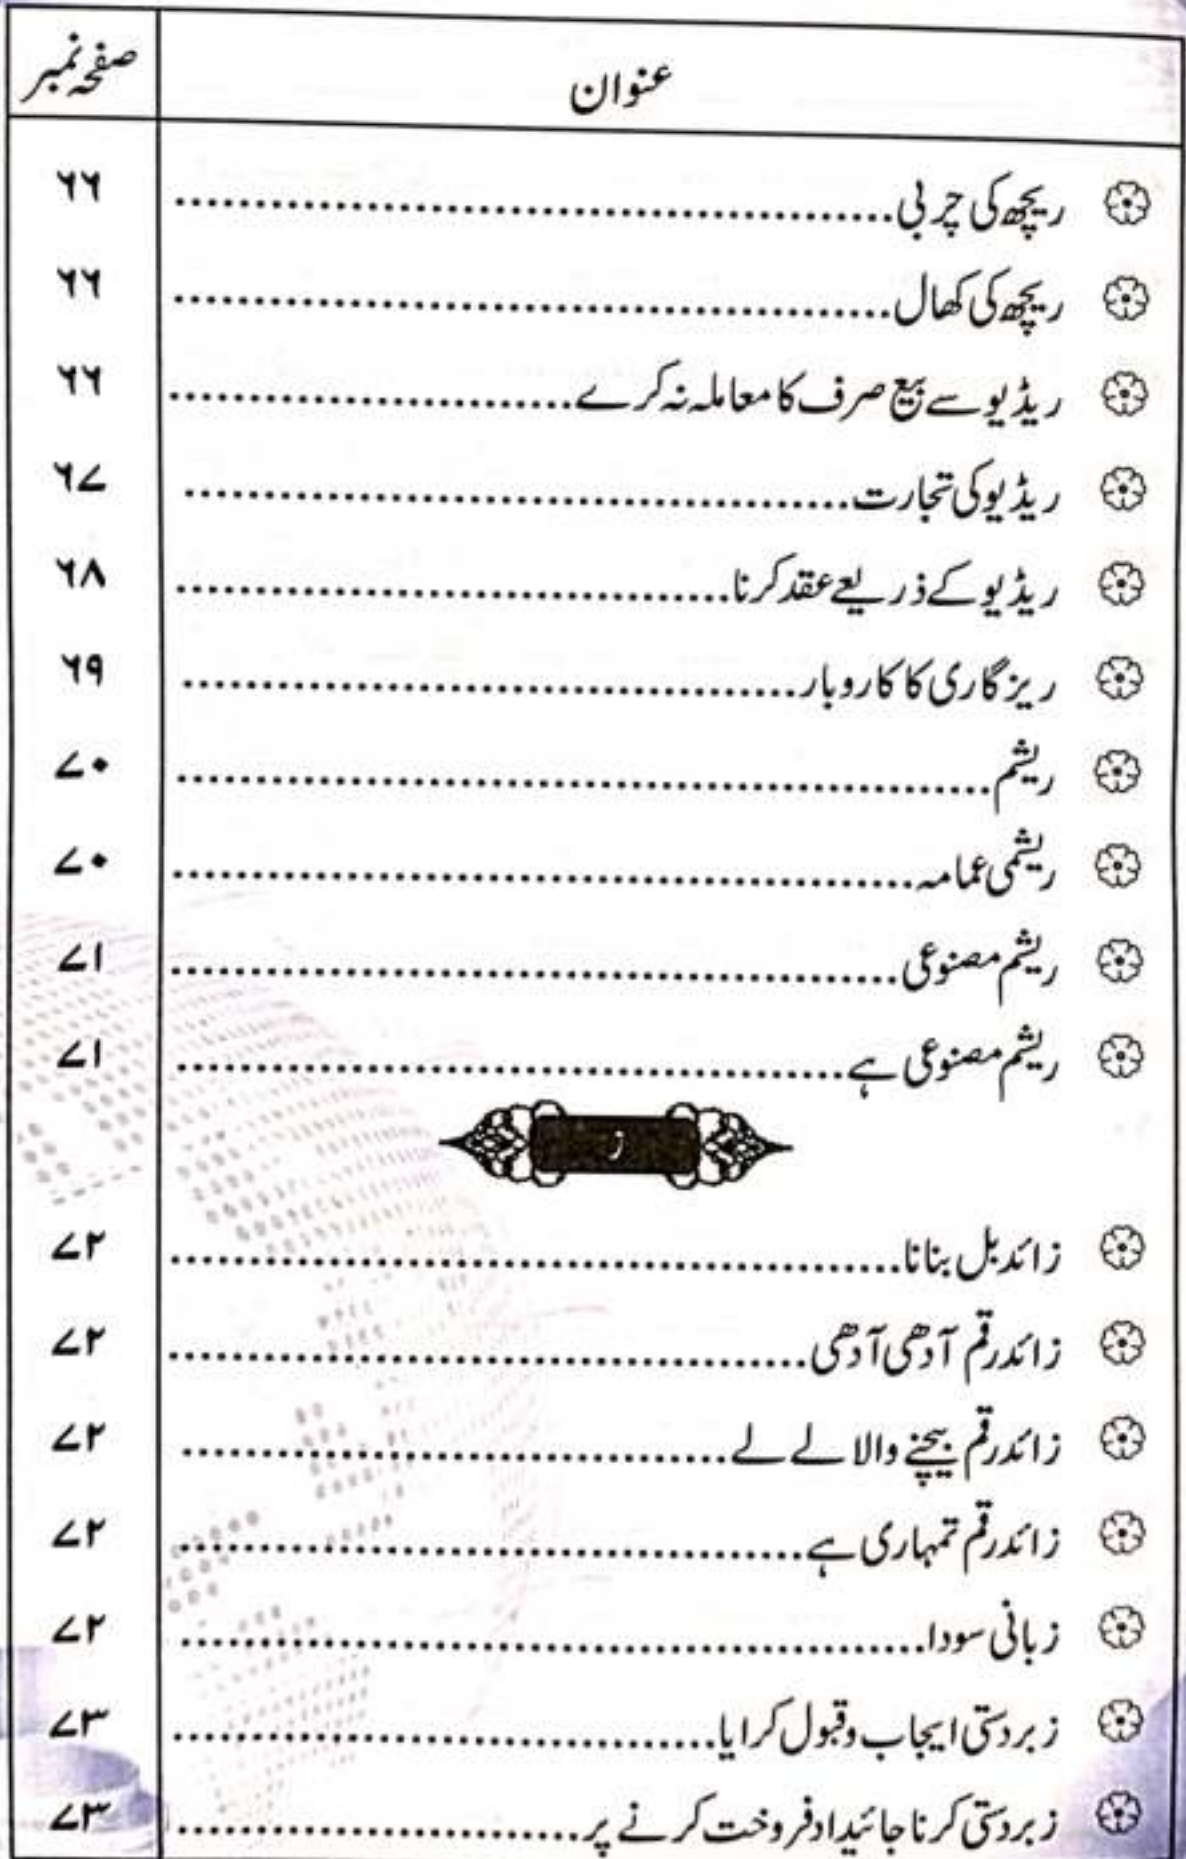 عنوان صفحہ نمبر
ریچھ کی چربی ................ ٦٦
ریچھ کی کھال ................ ٦٦
ریڈیو سے بیع صرف کا معاملہ نہ کرے ................ ٦٦
ریڈیو کی تجارت ................ ٦۷
ریڈیو کے ذریعے عقد کرنا ................ ٦۸
ریزگاری کا کاروبار ................ ٦۹
ریشم ................ ۷۰
ریشمی عمامہ ................ ۷۰
ریشم مصنوعی ................ ۷۱
ریشم مصنوعی ہے ................ ۷۱
ز
زائد بل بنانا ................ ۷۲
زائد رقم آدھی آدھی ................ ۷۲
زائد رقم بیچنے والا لے لے ................ ۷۲
زائد رقم تمہاری ہے ................ ۷۲
زبانی سودا ................ ۷۲
زبردستی ایجاب و قبول کرایا ................ ۷۳
زبردستی کرنا جائیداد فروخت کرنے پر ................ ۷۳